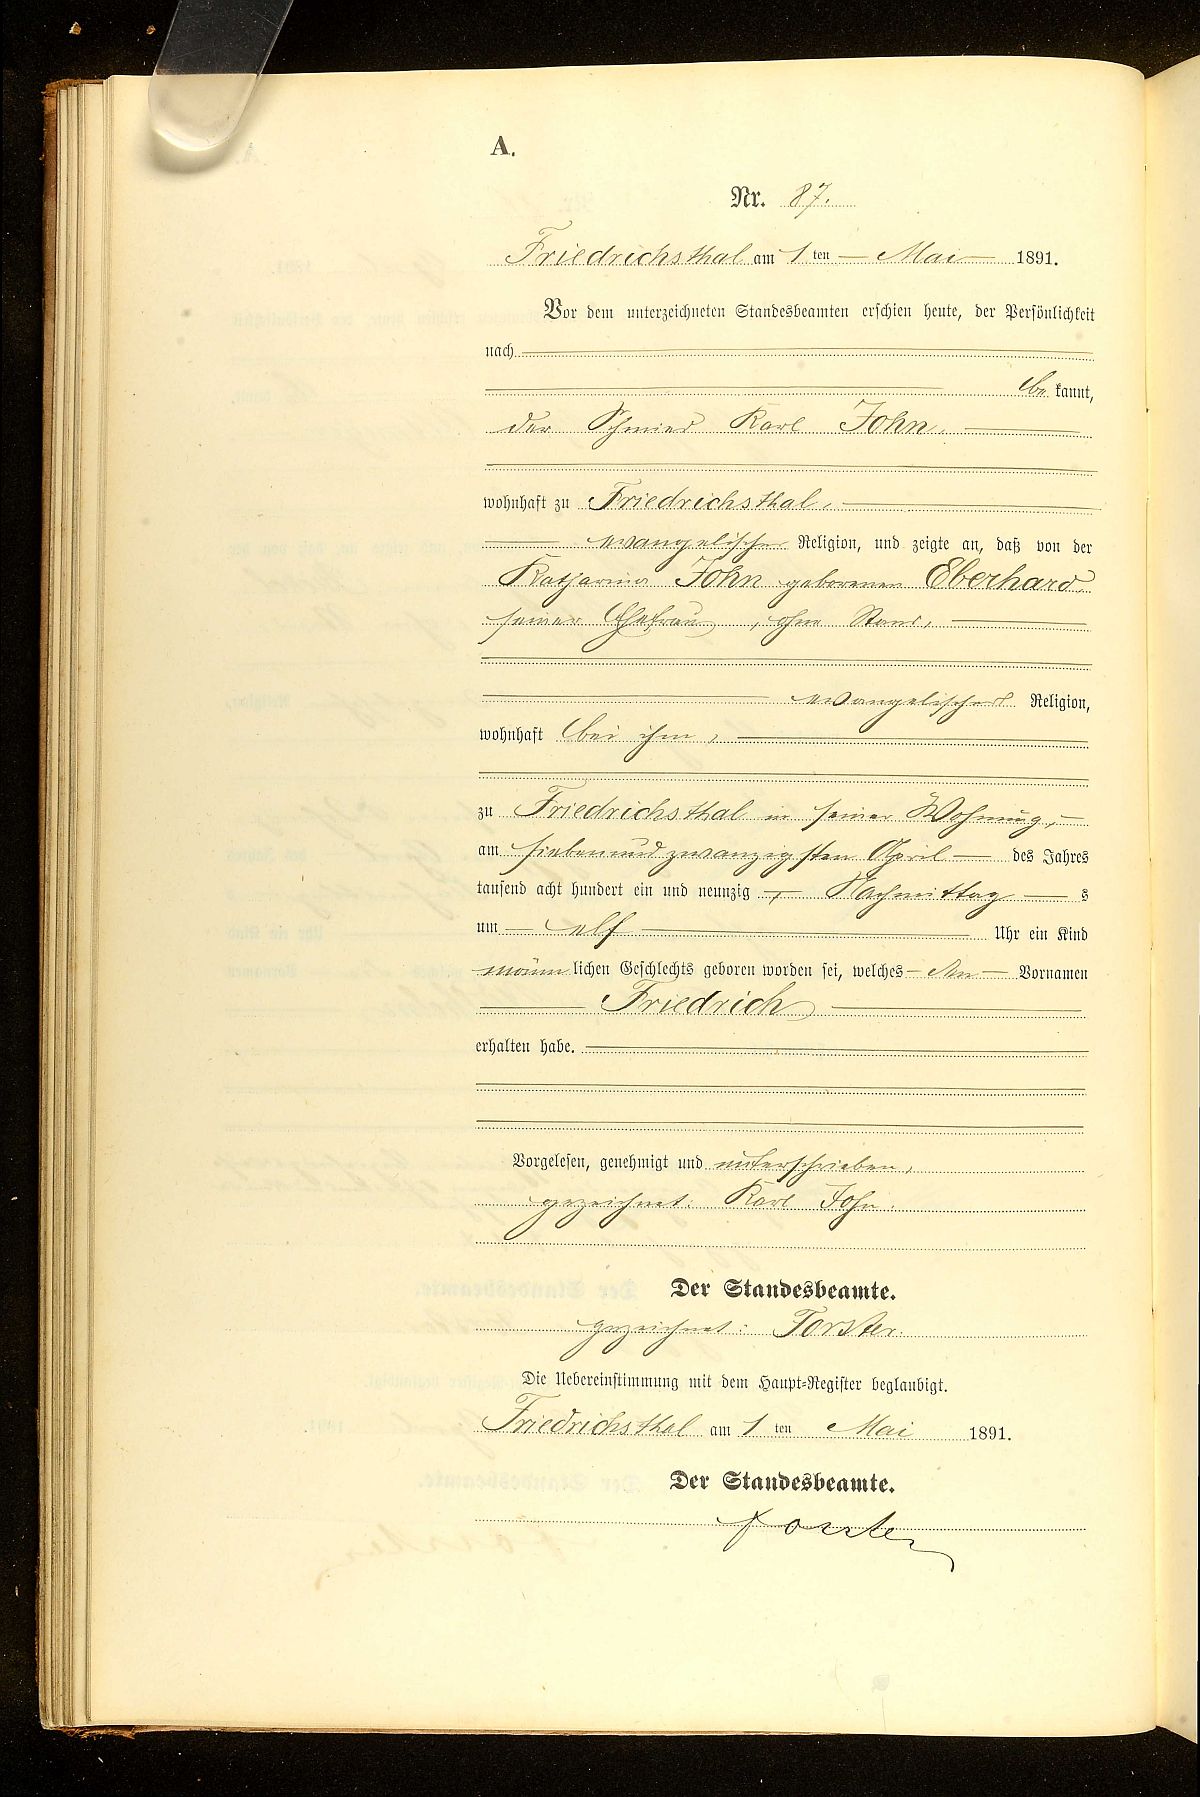 A.
Nr. 87.
Friedrichsthal am 1 ten Mai 1891.
Vor dem unterzeichneten Standesbeamten erschien heute, der Persönlichkeit
nach
be kannt,
der Schmied Karl John,
wohnhaft zu Friedrichsthal,
evangelischer Religion, und zeigte an, daß von der
Katharina John geborenen Eberhard,
seiner Ehefrau, ohne Stand,
evangelischer Religion,
wohnhaft bei ihm,
zu Friedrichsthal in seiner Wohnung,
am siebenundzwanzigsten April des Jahres
tausend acht hundert ein und neunzig, Nachmittag s
um elf Uhr ein Kind
männ lichen Geschlechts geboren worden sei, welches den Vornamen
Friedrich
erhalten habe.
Vorgelesen, genehmigt und unterschrieben,
gezeichnet: Karl John.
Der Standesbeamte.
gezeichnet: Forster.
Die Uebereinstimmung mit dem Haupt-Register beglaubigt.
Friedrichsthal am 1 ten Mai 1891.
Der Standesbeamte.
Forster